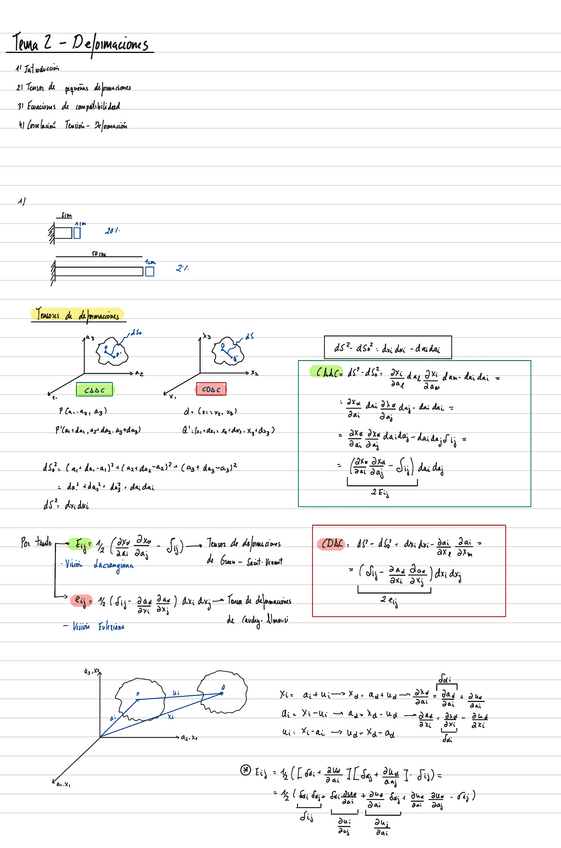 Tema 2 - Deformaciones
1) Introducción
2) Tensor de pequeñas deformaciones
3) Ecuaciones de compatibilidad
4) Correlación Tensión - Deformación
1)
5cm
1cm
20%
50cm
1cm
2%
Tensores de deformaciones
a3 dS0
a2
CΔΔC
x3 dS
x2
x1
CDΔC
P(a1, a2, a3)
P'(a1+da1, a2+da2, a3+da3)
Q'=(x1+dx1, x2+dx2, x3+dx3)
dS0² = (a1+da1-a1)² + (a2+da2-a2)² + (a3+da3-a3)²
= da1² + da2² + da3² = dai dai
dS² = dxi dxi
dS² - dS0² = dxi dxi - dai dai
CΔΔC = dS² - dS0² = ∂xi/∂al dal ∂xi/∂am dam - dai dai =
= ∂xα/∂ai dai ∂xα/∂aj daj - dai dai =
= ∂xα/∂ai ∂xα/∂aj dai daj - dai daj δij =
= (∂xα/∂ai ∂xα/∂aj - δij) dai daj
2Eij
Por tanto
Eij = 1/2 (∂xα/∂ai ∂xα/∂aj - δij) → Tensor de deformaciones
de Green - Saint-Venant
· Visión Lagrangiana
eij = 1/2 (δij - ∂aα/∂xi ∂aα/∂xj) dxi dxj → Tensor de deformaciones
de Cauchy-Almansi
- Visión Euleriana
CDΔC = dS² - dS0² = dxi dxi - ∂ai/∂xl ∂ai/∂xm =
= (δij - ∂aα/∂xi ∂aα/∂xj) dxi dxj
2eij
a3, x3
P
ui
Q
ai
xi
a2, x2
a1, x1
xi = ai + ui → xα = aα + uα → ∂xα/∂ai = ∂aα/∂ai + ∂uα/∂ai
δαi
ai = xi - ui → aα = xα - uα → ∂aα/∂xi = ∂xα/∂xi - ∂uα/∂xi
δαi
ui = xi - ai → uα = xα - aα
⊛ Eij = 1/2 ([δαi + ∂uα/∂ai][δαj + ∂uα/∂aj] - δij) =
= 1/2 (δαi δαj + δαi ∂uα/∂aj + ∂uα/∂ai δαj + ∂uα/∂ai ∂uα/∂aj - δij)
δij
∂ui/∂aj
∂uj/∂ai